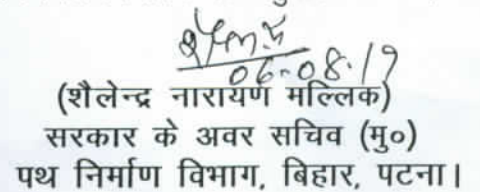 06-08-19
(शैलेन्द्र नारायण मल्लिक)
सरकार के अवर सचिव (मु०)
पथ निर्माण विभाग, बिहार, पटना।